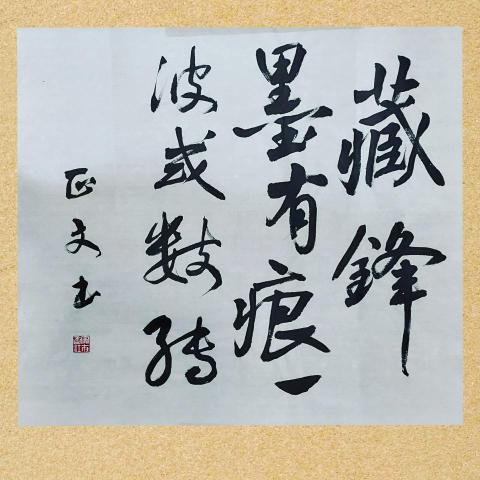 藏鋒
墨有痕一
波或数轉
正文书